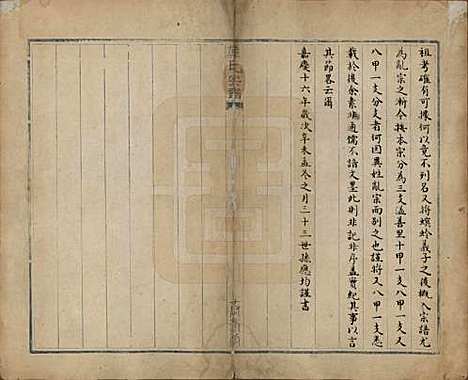 祖考確有可據何以竟不列名又將螟蛉義子之後概入宗譜尤
為亂宗之漸今按本宗分為三支孟善里十甲一支八甲一支又
八甲一支分支者何因異姓亂宗而別之也謹將又八甲一支悉
載於後余素通儒不諳文墨此則非記非序蓋實紀其事以言
其節畧云爾
嘉慶十六年歲次辛未孟春之月三十三世孫應均謹書
氏宗譜